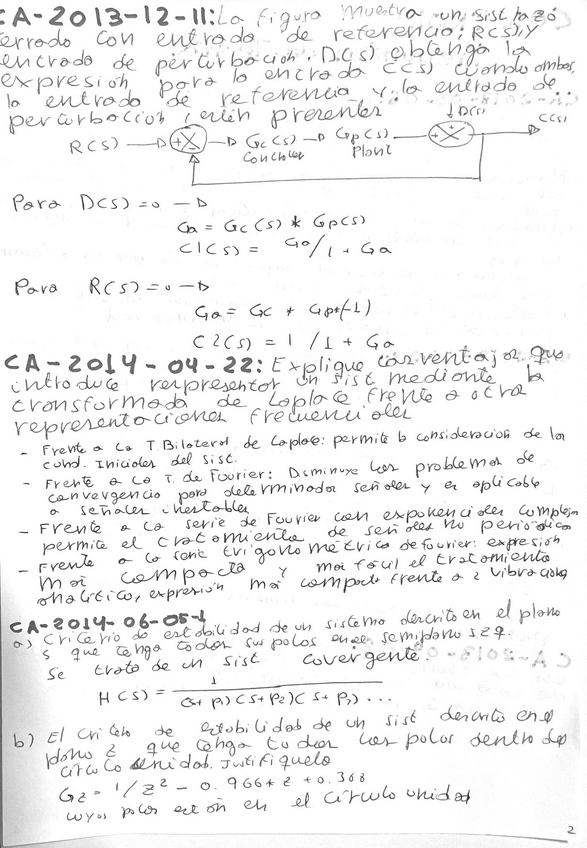 CA-2013-12-11: La figura muestra un sist lazo
cerrado con entrada de referencia; R(s), y
entrada de perturbacion, D(s) obtenga la
expresion para la entrada C(s) cuando ambas,
la entrada de referencia y la entrada de
perturbacion, esten presentes
R(s) Gc(s) Gp(s) D(s) C(s)
Plant
Para D(s) = 0
Ga = Gc(s) * Gp(s)
C1(s) = Ga / 1 + Ga
Para R(s) = 0
Ga = Gc * Gp*(-1)
C2(s) = 1 / 1 + Ga
CA-2014-04-22: Explique las ventajas que
introduce representar un sist mediante la
transformada de Laplace frente a otra
representaciones frecuenciales
- Frente a la T. Bilateral de Laplace: permite la consideracion de las
cond. Iniciales del sist.
- Frente a la T. de Fourier: Disminuye los problemas de
convergencia para determinadas señales y es aplicable
a señales inestables
- Frente a la serie de Fourier con exponenciales complejas
permite el tratamiento de señales no periodicas
- Frente a la serie trigonometrica de fourier: expresion
mas compacta y mas facil el tratamiento
analitico, expresion mas compacta frente a 2 vibraciones
CA-2014-06-05-1
a) Criterio de estabilidad de un sistema descrito en el plano
s que tenga todos sus polos en el semiplano izq.
Se trata de un sist covergente.
H(s) = 1 / (s+p1)(s+p2)(s+p3)...
b) El criterio de estabilidad de un sist descrito en el
plano z que tenga todos los polos dentro del
circulo unidad. Justifiquelo
Gz = 1/z² - 0.966*z + 0.368
cuyos polos estan en el circulo unidad
2